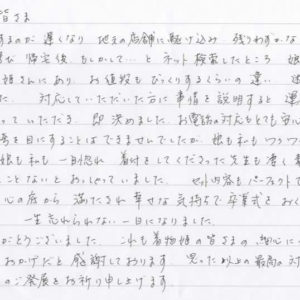 皆さま
するのが遅くなり 地元の店舗に駆け込み 残りわずかな
び 帰宅後 もしかして…と ネット検索したところ 娘
娘さんにあり、お値段もびっくりするくらいの違い
た。 対応していただいた方に事情を説明すると 運
っていただき、即決めました。お電話の対応もとても安心
を目にすることはできませんでしたが、娘も私も
娘も私も一目惚れ 着付をしてくださった先生も凄く
ことないとおっしゃっていました。 セット内容もパーフェクトで
心の底から 満たされ幸せな気持ちで卒業式をおく
一生忘れられない一日になりました。
がとうございました。これも着物娘の皆さまの細心に
おかげだと感謝しております。思った以上の最高の対
のご発展をお祈り申し上げます